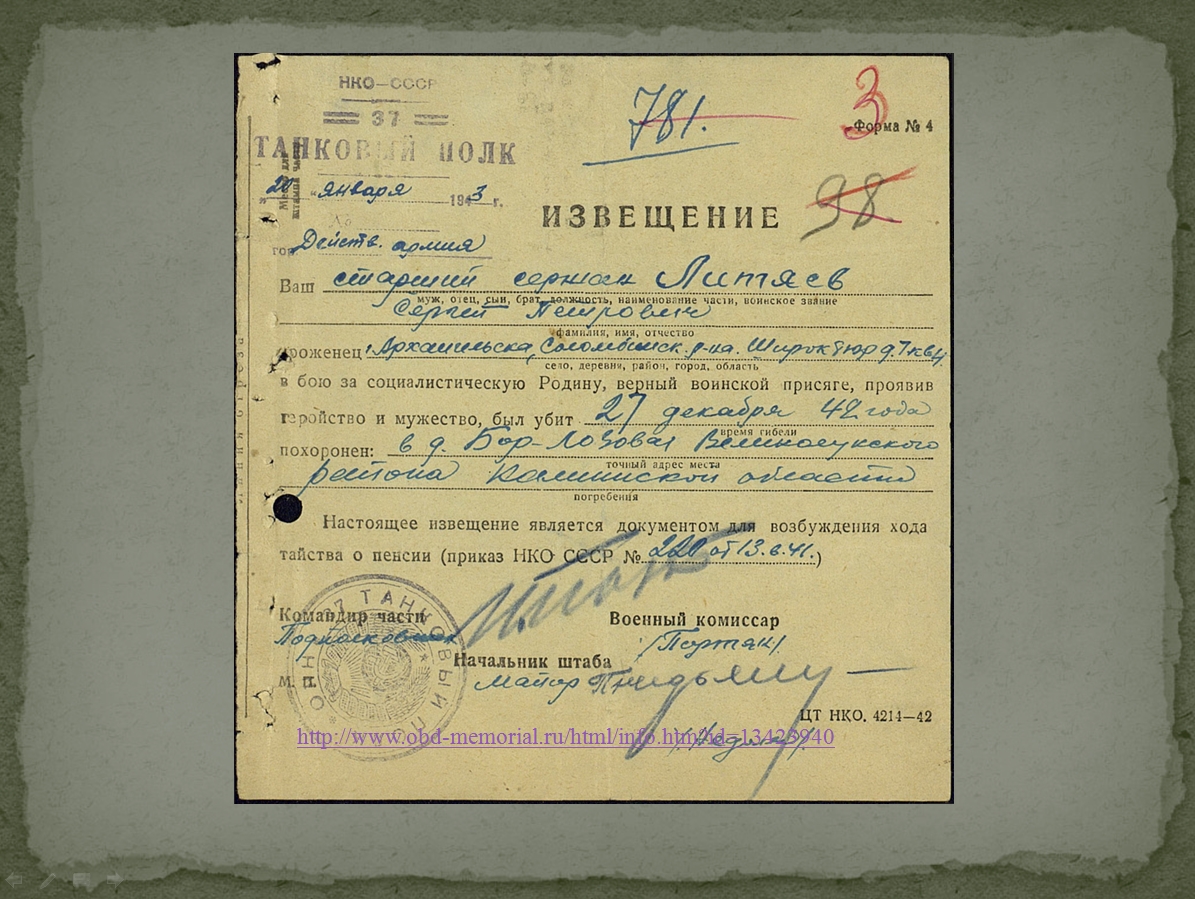 НКО-СССР
37
ТАНКОВЫЙ ПОЛК
781.
3
Форма № 4
"20" января 1943 г.
98
ИЗВЕЩЕНИЕ
гор. Действ. армия
Ваш старший сержан Литяев
муж, отец, сын, брат, должность, наименование части, воинское звание
Сергей Петрович
фамилия, имя, отчество
уроженец г. Архангельска, Соломбальск. р-на. Широк
село, деревня, район, город, область
в бою за социалистическую Родину, верный воинской присяге, проявив
геройство и мужество, был убит 27 декабря 42 года
время гибели
похоронен: в д. Бор-Лозовая Великолукского
точный адрес места
района Калининской области
погребения
Настоящее извещение является документом для возбуждения хода
тайства о пенсии (приказ НКО СССР № 220 от 13.6.41.)
Командир части
Военный комиссар
Подполковник
Начальник штаба
Майор
М.
37 ТАНКОВЫЙ П
ЦТ НКО. 4214—42
http://www.obd-memorial.ru/html/info.htm?id=13423940